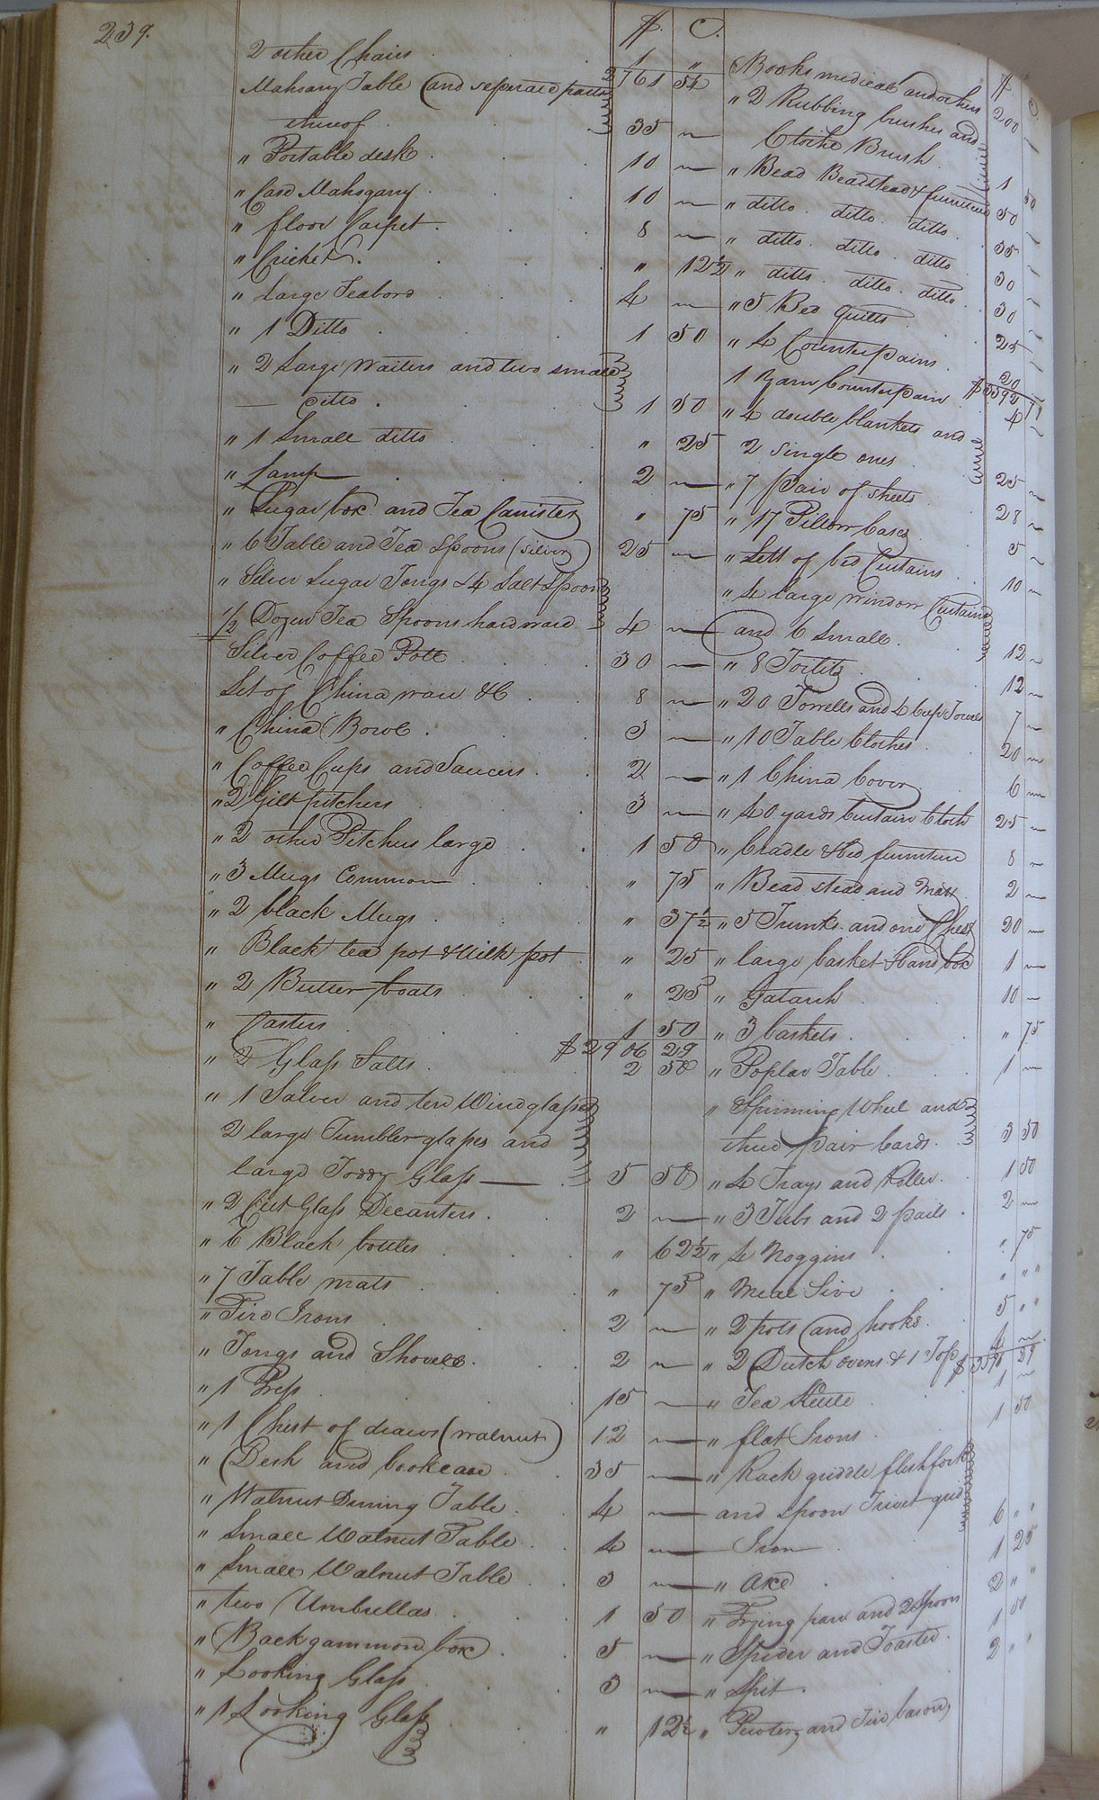 239.
$. C.
2 other Chairs . 1 "
2761 54
Mahogany Table (and separated parts
thereof . 35 —
" Portable desk . 10 —
" Case Mahogany . 10 —
" floor Carpet . 8 —
" Cricket . " 12½
" large Teabord . 4 —
" 1 Ditto . 1 50
" 2 Large Waiters and two small
— ditto . 1 50
" 1 Small ditto " 25
" Lamp 2 —
" Sugar box and Tea Canister " 75
" 6 Table and Tea Spoons (silver) 25 —
" Silver Sugar Tongs & 4 Salt Spoons
½ Dozen Tea Spoons hardward 4 —
Silver Coffee Pott 30 —
Set of China ware &C 8 —
" China Bowl . 3 —
" Coffee Cups and Saucers . 2 —
" 2 Gilt pitchers 3 —
" 2 other Pitchers large 1 50
" 3 Mugs Common " 75
" 2 black Mugs . " 37½
" Black tea pot & Milk pot " 25
" 2 Butter boats " 25
" Casters 1 50
$2906 29
" 2 Glass Salts 2 50
" 1 Salver and ten Wineglasses
2 large Tumbler glasses and
large Toddy Glass — 5 50
" 2 Cut Glass Decanters . 2 —
" 6 Black bottles " 62½
" 7 Table mats " 75
" Fire Irons 2 —
" Tongs and Shovels . 2 —
" 1 Press 15 —
" 1 Chest of draws (walnut) 12 —
" Desk and bookcase 35 —
" Walnut Dining Table . 4 —
" Small Walnut Table . 4 —
" Small Walnut Table . 3 —
" two Umbrellas . 1 50
" Backgammon box . 5 —
" Looking Glass 3 —
" 1 Looking Glass " 12½
$ C.
Books medical and others 200 —
" 2 Rubbing brushes and
Clothe Brush . 1 50
" Bead Beadstead & furniture 50 —
" ditto . ditto . ditto . 35 —
" ditto . ditto . ditto 30 —
" ditto . ditto . ditto . 30 —
" 5 Bed quilts 25 —
" 4 Counterpains . 20
1 Yarn Counterpain 4 —
" 4 double blankets and
2 single ones . 25 —
" 7 Pair of sheets 28 —
" 17 Pillow Cases 5 —
" Sett of bed Curtains . 10 —
" 4 large window Curtains
and 6 Small . 12 —
" 8 12 —
" 20 Towells and 4 Cup Towels 7 —
" 10 Table Clothes . 20 —
" 1 China Cover 6 —
" 40 yards Curtain Cloth 25 —
" Cradle & bed furniture 8 —
" Bead stead and Matt 2 —
" 5 Trunks and one Chest 20 —
" large basket & band box 1 —
" 10 —
" 3 baskets . " 75
" Poplar Table . 1 —
" Spinning Wheel and
three pair Cards . 3 50
" 4 Trays and Roller . 1 50
" 3 Tubs and 2 pails . 2 —
" 4 Noggins " 75
" Meal Sive " " "
" 2 pots and hooks . 5 " "
" 2 Dutch ovens & 1 Top 4 —
" Tea Kettle 1 —
" flat Irons . 1 50
" Rack griddle fleshfork
and spoon Trivet grid
Iron 6 " "
" Axe 1 25
" Frying pan and 2 Spoon 2 " "
" Spider and Toaster . 1 50
" Spit . 2 " "
" Pewter and Tin bason